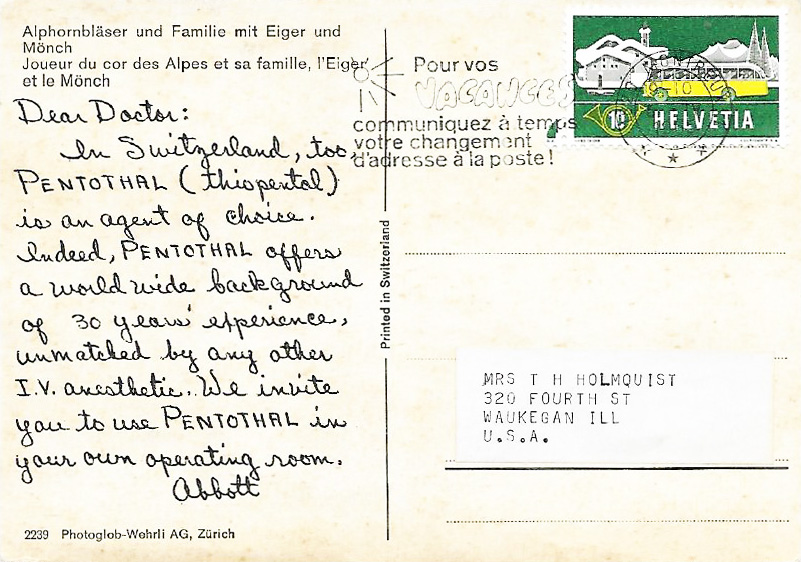 Alphornbläser und Familie mit Eiger und
Mönch
Joueur du cor des Alpes et sa famille, l'Eiger
et le Mönch
Dear Doctor:
In Switzerland, too,
PENTOTHAL (thiopental)
is an agent of choice.
Indeed, PENTOTHAL offers
a world wide background
of 30 years' experience,
unmatched by any other
I.V. anesthetic. We invite
you to use PENTOTHAL in
your own operating room.
Abbott
2239 Photoglob-Wehrli AG, Zürich
Printed in Switzerland
Pour vos
VACANCES
communiquez à temps
votre changement
d'adresse à la poste!
10 HELVETIA
MRS T H HOLMQUIST
320 FOURTH ST
WAUKEGAN ILL
U.S.A.